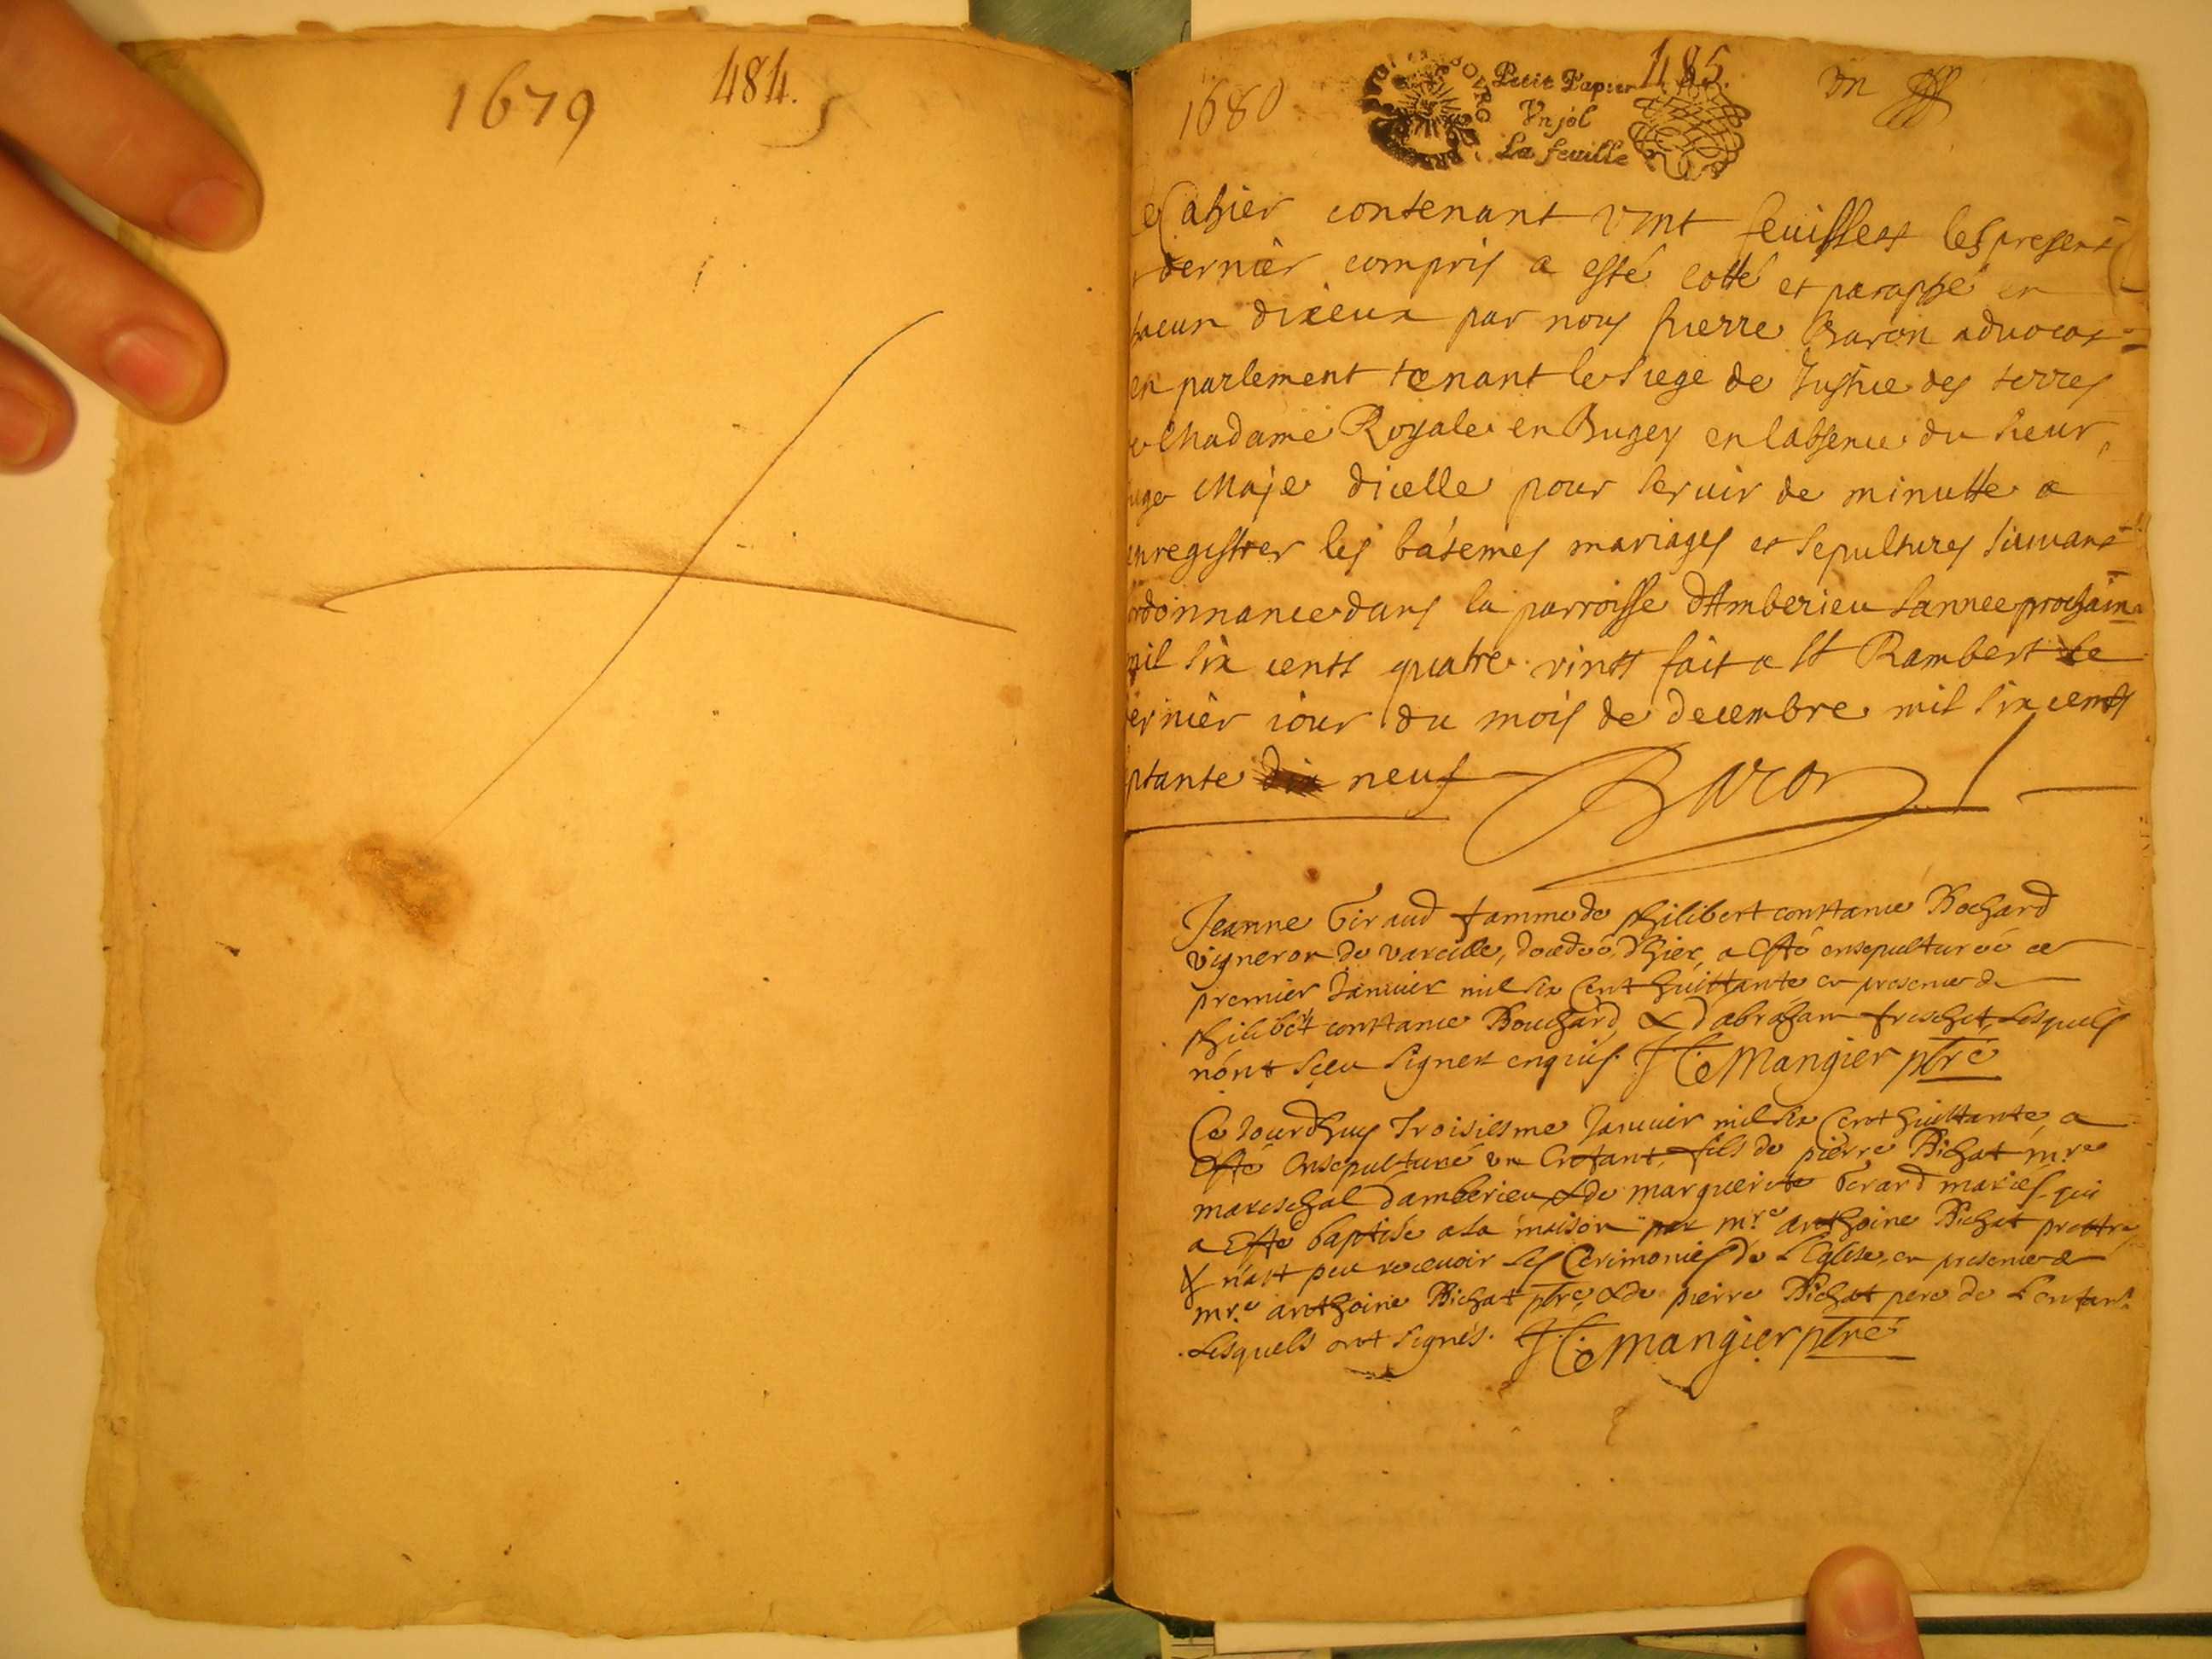 1679
484.
1680
BOURG
Petit Papier
Un sol
La feuille
485.
Vn
Ce Cahier contenant vint feuillets les present
dernier compris a esté cotté et paraphé en
hacun diceux par nous pierre Baron aduocat
en parlement tenant le siege de Justice des terres
e Madame Royale en Bugey en labsence du sieur
uge Maje dicelle pour seruir de minutte a
enregistrer les batemes mariages et sepultures suiuant
rdonnance dans la parroisse dAmberieu lannee prochain
mil six cents quatre vints fait a St Rambert le
ernier iour du mois de decembre mil six cents
ptante dix neuf Baron
Jeanne Giraud famme de philibert constance Bochard
vigneron de vareille, decedeé d'hier, a esté ensepultureé ce
premier Januier mil six Cent huittante en presence de
philibert constance Bouchard, & d'abraham freschet, Lesquels
n'ont sçeu signer enquis. H C Mangier pbre
Ce Jourd'huy Troisiesme Januier mil six Cent huittante, a
Esté Ensepulturé vn Enfant, fils de pierre Bichat mre
mareschal d'amberieu & de marguerite Gerard mariés qui
a Esté baptisé a la maison par mre anthoine Bichat prebtre
& n'a peu receuoir les Cerimonies de L'Eglise, en presence de
mre anthoine Bichat pbre, & de pierre Bichat pere de L'enfant
Lesquels ont signés. H C mangier pbre